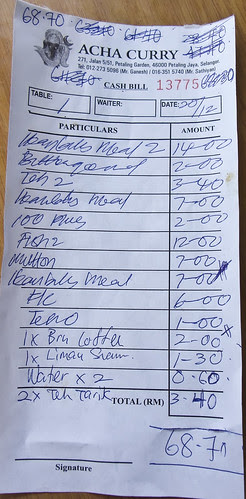 68.70
ACHA CURRY
271, Jalan 5/51, Petaling Garden, 46000 Petaling Jaya, Selangor.
Tel: 012-273 5096 (Mr. Ganesh) / 016-351 5740 (Mr. Sathiya)
CASH BILL 13775
TABLE: 1 WAITER: DATE: 20/12
PARTICULARS AMOUNT
Meal 2 14-00
2-00
Teh 2 3-40
Meal 7-00
100 Plus 2-00
Fish 2 12-00
Mutton 7-00
Meal 7-00
F/C 6-00
1-00
1x Bru Coffee 2-00
1x Limau 1-30
Water x 2 0.60
2x Teh Tarik TOTAL (RM) 3.40
68-70
Signature